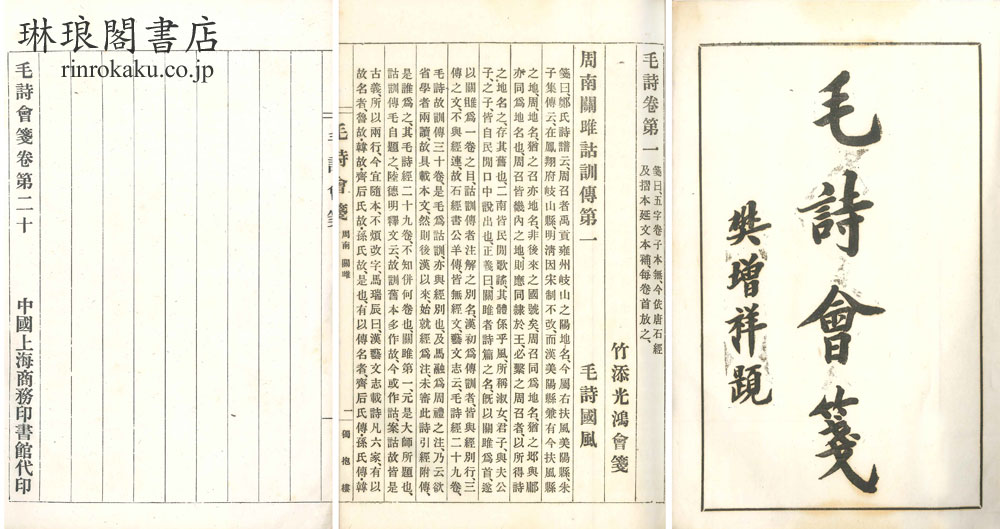 琳琅閣書店
rinrokaku.co.jp
毛詩會箋
樊增祥題
毛詩卷第一
箋曰、五字卷子本無、今依唐石經
及摺本延文本補、每卷首放之、
竹添光鴻會箋
周南關雎詁訓傳第一 毛詩國風
箋曰、鄭氏詩譜云、周召者禹貢雍州岐山之陽地名、今屬右扶風美陽縣、朱
子集傳云、在鳳翔府岐山縣、明清因宋制不改、而漢美陽縣兼有今扶風縣
之地、周、地名、猶之召亦地名、非後來之國號矣、周召同爲地名、猶之邶與鄘
亦同爲地名也、周召皆畿內之地、則應同隷於王、必繫之周召者、以所得詩
之地名之、存其舊也、二南皆民間歌謠、其體係乎風、所稱淑女、君子、與夫公
子、之子、皆自民間口中說出也、正義曰、關雎者詩篇之名、旣以關雎爲首、遂
以關雎爲一卷之目、詁訓傳者注解之別名、漢初爲傳訓者、皆與經別行、三
傳之文、不與經連、故石經書公羊傳、皆無經文、藝文志云、毛詩經二十九卷、
毛詩故訓傳三十卷、是毛爲詁訓、亦與經別也、及馬融爲周禮之注、乃云欲
省學者兩讀、故具載本文、然則後漢以來始就經爲注、未審此詩引經附傳、
是誰爲之、其毛詩經二十九卷、不知併何卷也、關雎第一、元是大師所題也、
詁訓傳毛自題之、陸德明釋文云、故訓舊本多作故、今或作詁、案詁故皆是
古義、所以兩行、今宜隨本、不煩改字、馬瑞辰曰、漢藝文志載詩凡六家、有以
故名者、魯故、韓故、齊后氏故、孫氏故、是也、有以傳名者、齊后氏傳、孫氏傳、韓
毛詩會箋 周南 關雎 二 獨抱樓
毛詩會箋卷第二十
中國上海商務印書館代印